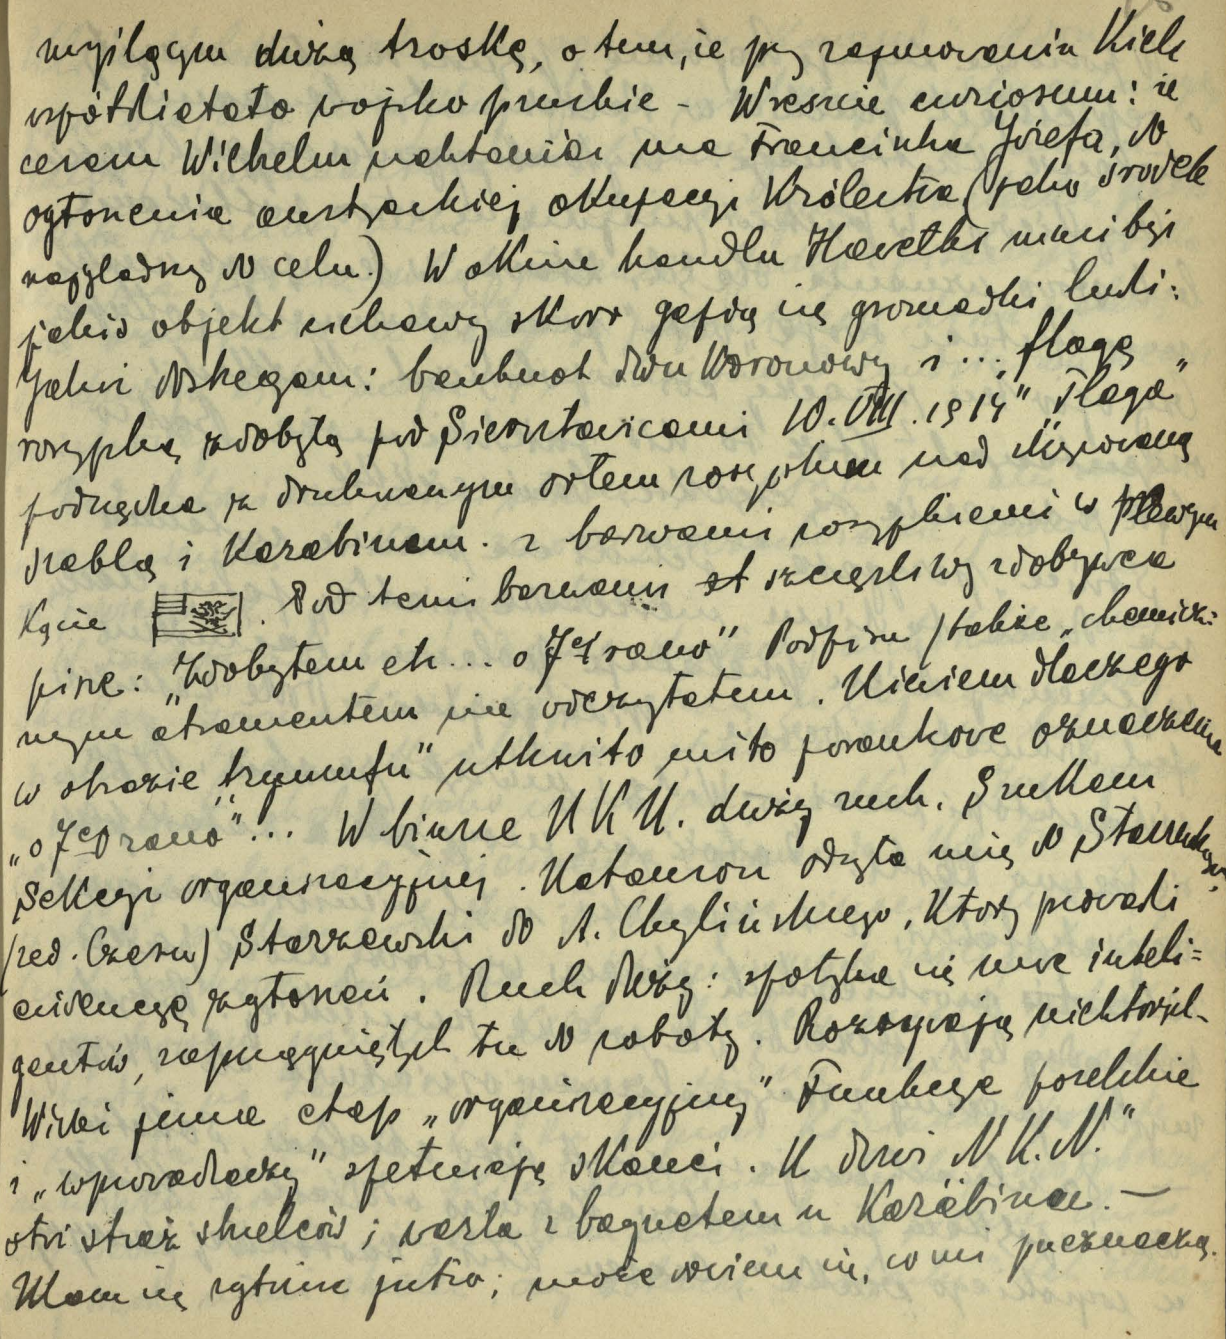 myślącym dużą troskę, o tem, że przy zajmowaniu Kielc
współdziałało wojsko pruskie – Wreszcie curiosum: że
cesarz Wilhelm nakłaniać ma Franciszka Józefa, do
ogłoszenia austryackiej okupacyi Królestwa (jako środek
najgładszy do celu.) W oknie handlu Hawełki musi być
jakiś objekt ciekawy skoro gapią się gromadki ludzi:
Jakoż dostrzegam: banknot dwu koronowy i ... „flagę
rosyjską zdobytą pod Sierosławicami 10.VIII.1914" „Flaga"
podłużna z drukowanym orłem rosyjskim nad skrzyżowaną
szablą i karabinem. z barwami rosyjskiemi w prawym
Kącie . Pod temi barwami szczęśliwy zdobywca
pisze: „Zdobyłem etc... o 7ej rano" Podpisu /także „chemicz-
nym" atramentem nie odczytałem. Nie wiem dlaczego
w obrazie „tryumfu" utkwiło mi to porankowe oznaczenie
„o 7ej rano"... W biurze NKN. duży ruch. Szukam
Sekcyi organizacyjnej. Natanson odsyła mię do Starzewskiego
(red. Czasu) Starzewski do A. Chylińskiego, który prowadzi
ewidencyę zgłoszeń. Ruch duży: spotyka się inteli-
gentów, zaprzągniętych tu do roboty. niektórych
Widzi etap „organizacyjny" Funkcye poselskie
i „wprowadzaczy" spełniają skauci. U drzwi „N.K.N."
stoi straż strzelców; warta z bagnetem u karabina. —
Mam się zgłosić jutro; może dowiem się, co mi przeznaczą.